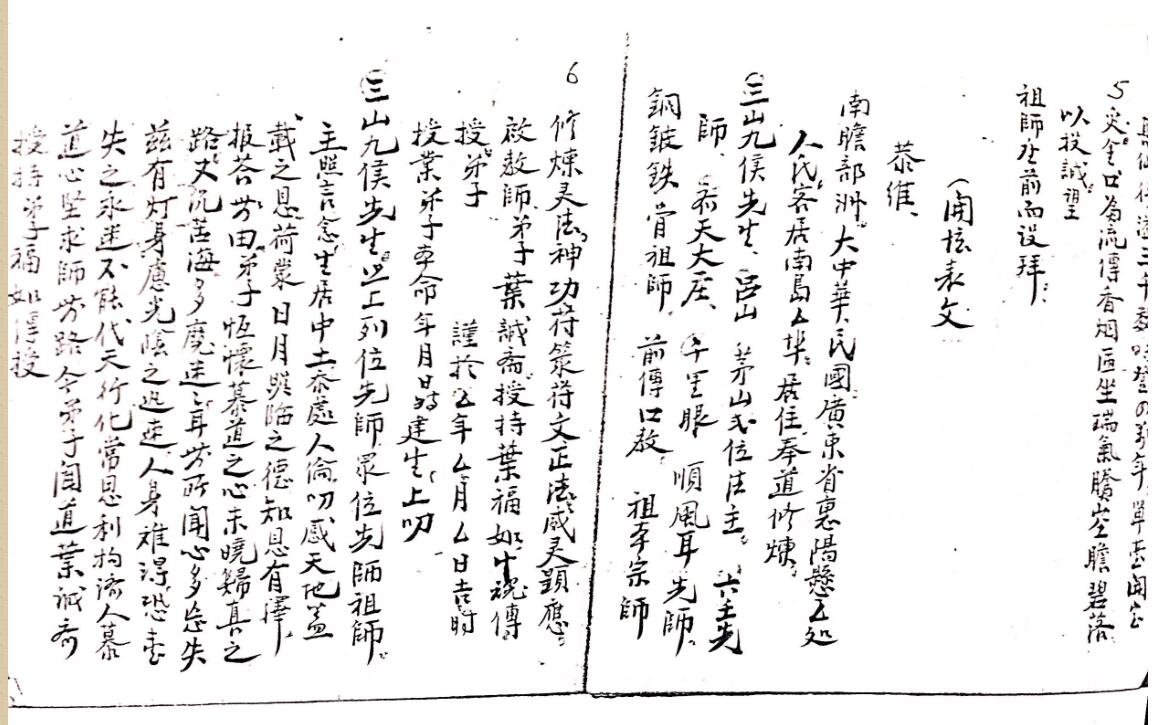 5
災金口為流傳香烟區坐瑞氣騰空瞻碧落
以投誠望
祖師座前而设拜
(開坛表文
恭維
南瞻部洲大中華民國廣東省惠陽縣厶処
人民客居南島厶埠居住奉道修煉
三山九侯先生 吕山 茅山弍位法主 六壬先
師 齐天大圣 千里眼 順風耳先師
銅鈹鉄骨祖師 前傳口教 祖本宗師
6
修煉灵法神功符箓符文正法感灵顕應
啟教師弟子葉誠斋授持葉福如十魂傳
授弟子 謹於厶年厶月厶日吉時
授業弟子本命年月日时建生上叨
三山九侯先生 以上列位先師眾位先師祖師
主照言念生居中土忝處人倫叨感天地盖
載之恩荷蒙日月照臨之德知恩有澤
报荅无由弟子恆懷慕道之心未曉歸真之
路又沉苦海多魔迷耳无所闻心多忘失
兹有灯身慮光陰之迅速人身难得恐壹
失之永迷不能代天行化常思利物济人慕
道心堅求師无路令弟子闻道葉诚斋
授持弟子福如傳授